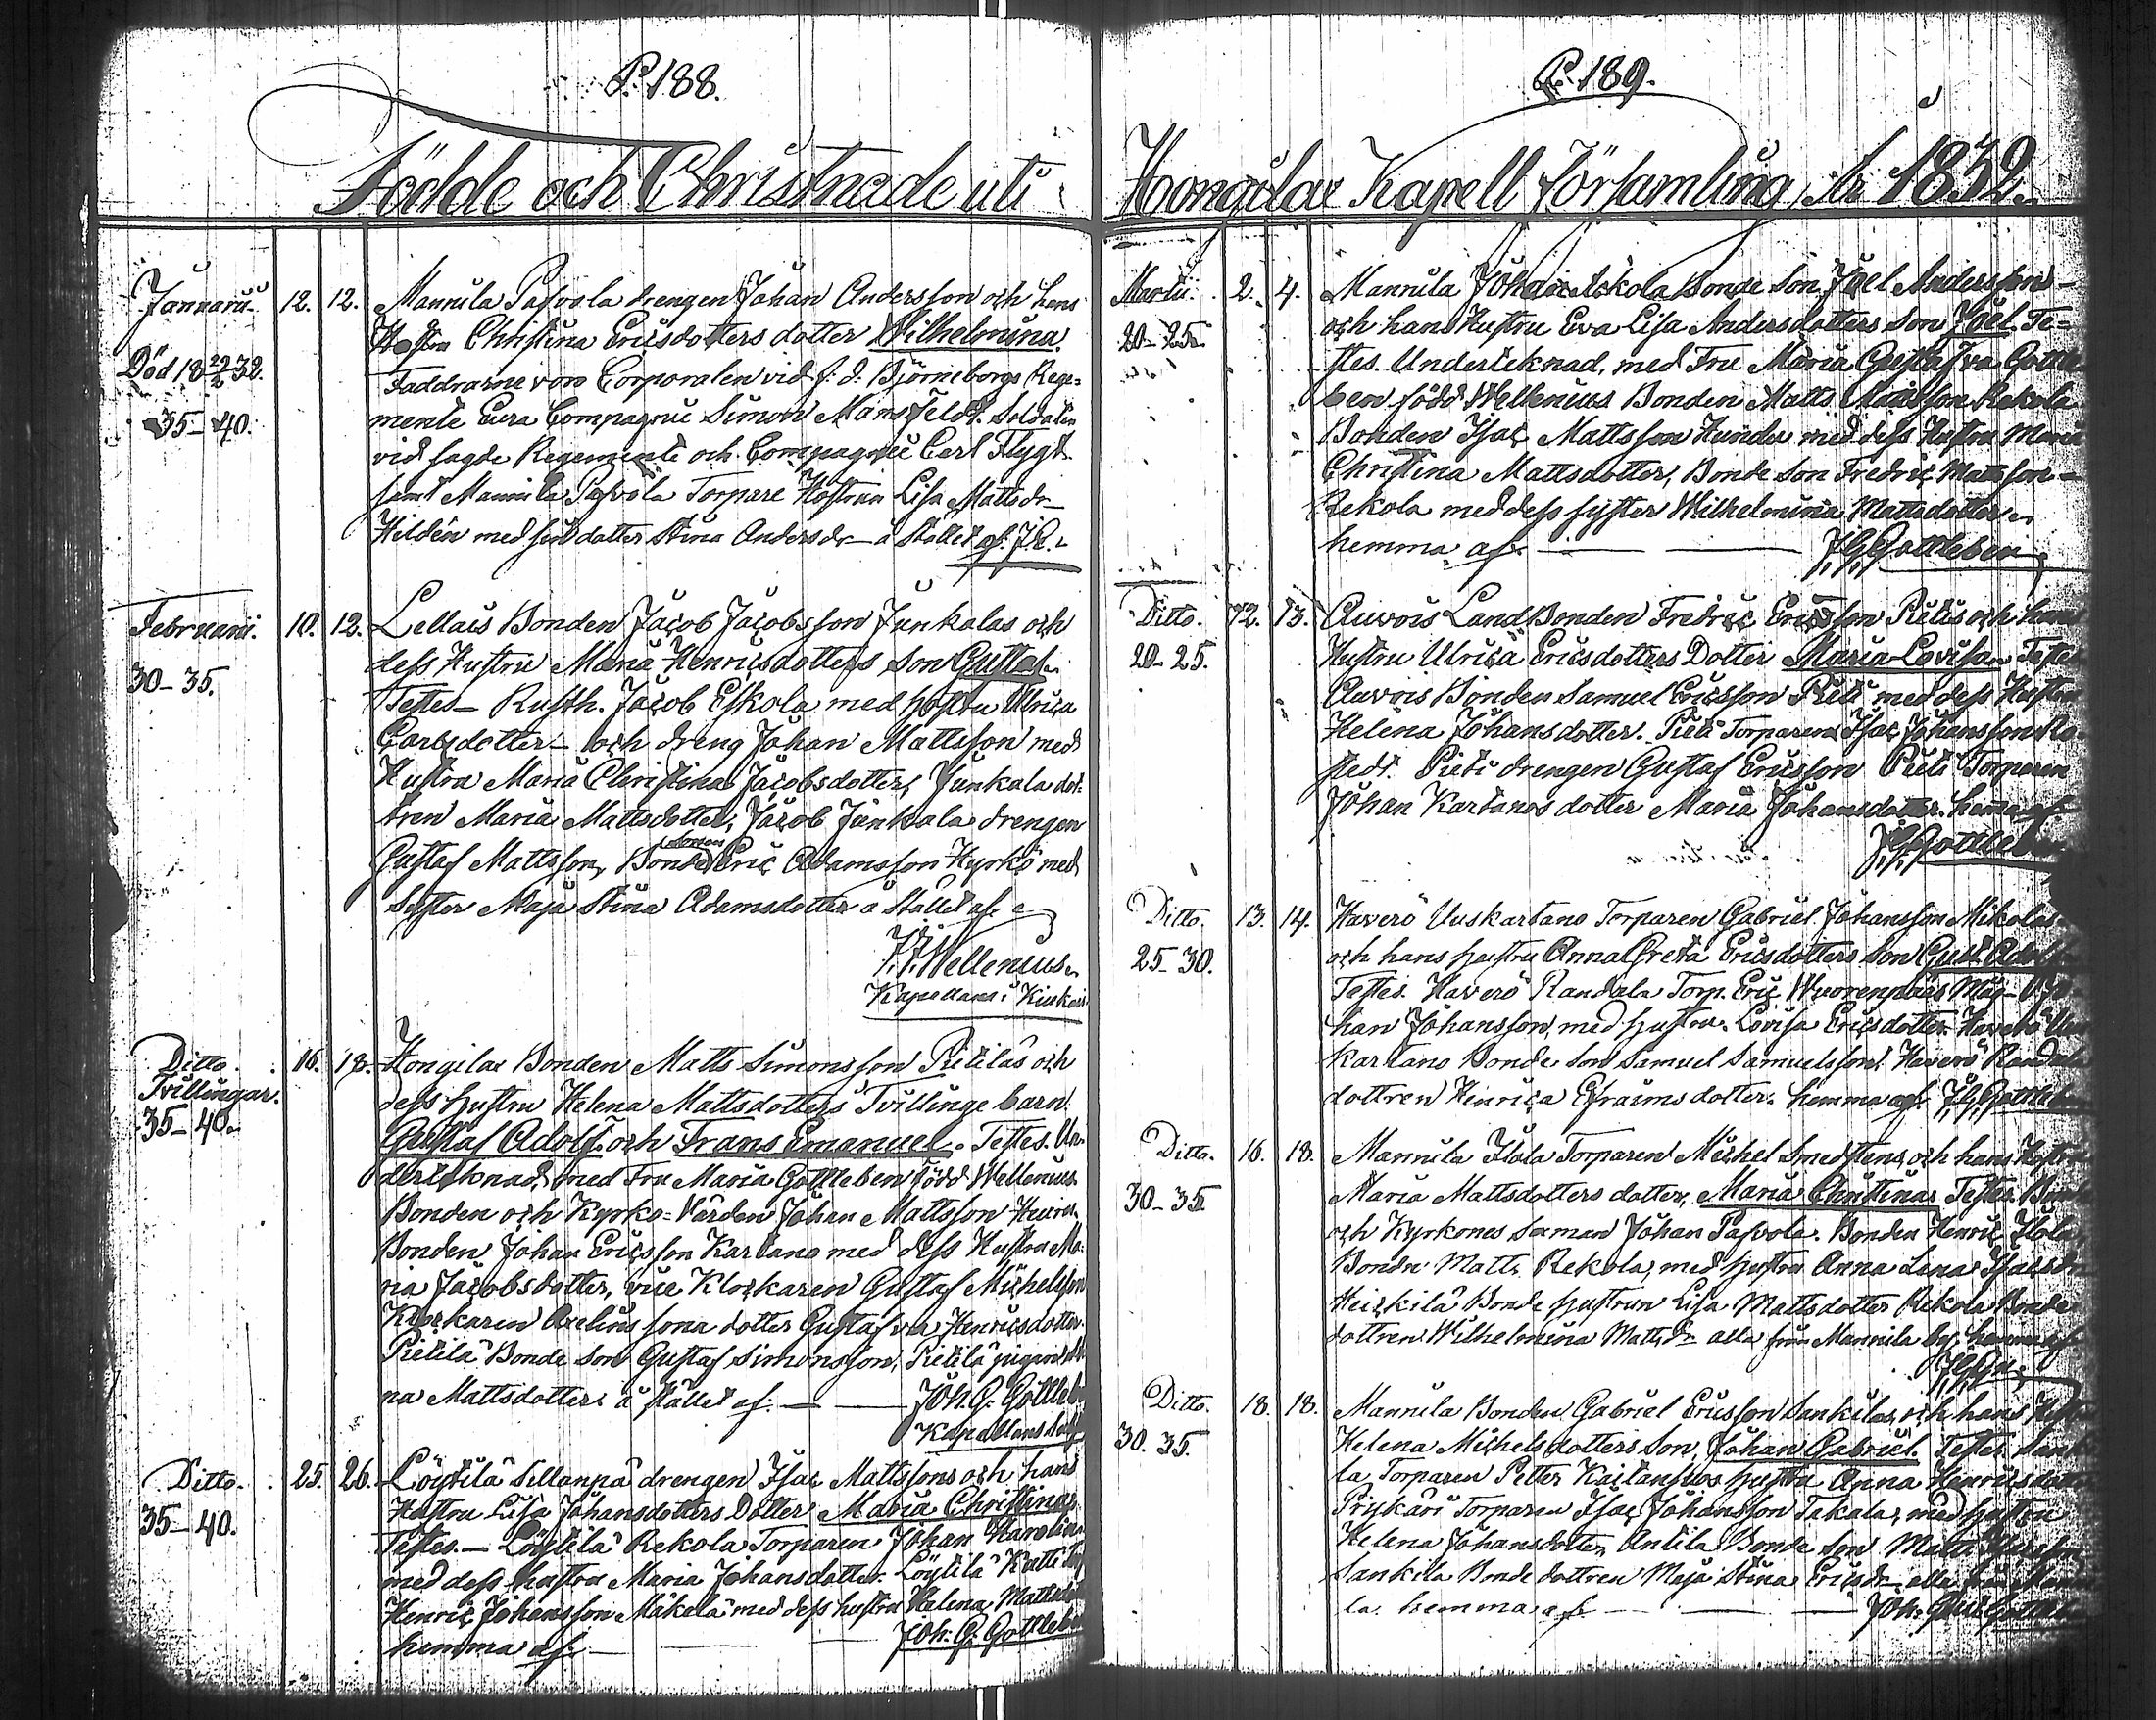 P. 188.
Födde och Christnade uti
Januarii. 12. 12. Mannila Pasvola drengen Johan Andersson och hans
Hustru Christina Ericsdotters dotter Wilhelmina.
Död 18 29/2 32. Faddrarne voro Corporalen vid f. d. Björneborgs Rege-
35-40. mente Eura Compagnie Simon Mansfeldt. Soldaten
vid sagde Regemente och Compagnie Carl Flygt
samt Mannila Pasvola Torpare Hustrun Lisa Mattsdr
Hildén med sin dotter Stina Andersdr å stället af.
Februarii. 10. 12. Lellais Bonden Jacob Jacobsson Junkalas och
dess Hustru Maria Henricsdotters Son Gustaf.
30-35. Testes - Rusth. Jacob Eskola med Hustru Ulrica
Carlsdotter - och dreng Johan Mattsson med
Hustru Maria Christina Jacobsdotter, Junkala dot-
tren Maria Mattsdotter, Jacob Junkala drengen
Gustaf Mattsson, Bonde sonen Eric Adamsson Kyrkö med
Syster Maja Stina Adamsdotter å stället af
Wellenius.
Kapellans i Kiukais
Ditto. 16. 18. Hongilax Bonden Matts Simonsson Pietiläs och
Tvillingar. dess Hustru Helena Mattsdotters Tvillinge barn.
35-40. Gustaf Adolf. och Frans Emanuel. Testes. Un-
derteknad, med Fru Maria Gottleben född Wellenius.
Bonden och Kyrko-Värden Johan Mattsson
Bonden Johan Ericsson Kartano med dess Hustru Ma-
ria Jacobsdotter, vice Klockaren Gustaf Michelsson
Klockaren Axelius sona dotter Gustafva Henricsdotter.
Pietilä Bonde Son Gustaf Simonsson, Pietilä pigan
na Mattsdotter. å stället af. Joh. G. Gottleben
Kapellans
Ditto. 25. 26. Löytilä Sillanpä drengen Isac Mattssons och hans
35-40. Hustru Lisa Johansdotters Dotter Maria Christina.
Testes. - Löytilä Rekola Torparen Johan
med dess hustru Maria Johansdotter. Löytilä Katti
Henric Johansson Mäkelä med dess hustru Helena
hemma af Joh. G. Gottleben
P. 189.
Hongilax Kapell Församling År 1832.
Martii. 2. 4. Mannila Johan Bonde Son Joel Anderssons
20-25. och hans Hustru Eva Lisa Andersdotters Son Joel. Te-
stes. Underteknad, med Fru Maria Gustafva Gottle
ben född Wellenius Bonden Matts Rekola
Bonden Isac Mattsson Hunder med dess Hustru Maria
Christina Mattsdotter, Bonde Son Fredric Mattsson
Rekola med dess syster Wilhelmina Mattsdotter
hemma af J. G. Gottleben
Ditto. 12. 13. Auvois Land Bonden Fredric Ericsson Pietis och hans
20-25. Hustru Ulrica Ericsdotters Dotter Maria Lovisa. Testes
Auvois Bonden Samuel Ericsson Pieti med dess Hustru
Helena Johansdotter. Pieti Torparen Isac Johansson Ro
stedt. Pieti drengen Gustaf Ericsson Pieti Torparen
Johan Kartanos dotter Maria Johansdotter. hemma af
J. G. Gottleben
Ditto. 13. 14. Haverö Uuskartano Torparen Gabriel Johansson Mikolas
25-30. och hans hustru Anna Greta Ericsdotters Son Gust. Adolf
Testes. Haverö Randala Torp. Eric Wuorenpääs Måg
han Johansson, med hustru Lovisa Ericsdotter. Haverö
kartano Bonde son Samuel Samuelsson. Haverö
dottren Henrica Efraimsdotter. hemma af J. G. Gottleben
Ditto. 16. 18. Mannila Ilola Torparen Michel Smedstens och hans Hustru
30-35. Maria Mattsdotters dotter, Maria Christina. Testes.
och Kyrkones Seman Johan Pasvola. Bonden Henric Ilola
Bonden Matts Rekola, med hustru Anna Lena
Heickilä Bonde hustrun Lisa Mattsdotter Rekola Bonde
dottren Wilhelmina Mattsdr alla från Mannila by. hemma af
Ditto. 18. 18. Mannila Bonden Gabriel Ericsson Sankilas, och hans
30. 35. Helena Michelsdotters son, Johan Gabriel. Testes.
la Torparen Petter hustru Anna Henricsdotter
Torparen Isac Johansson Takala, med hustru
Helena Johansdotter, Antila Bonde Son Matts
Sankila Bonde dottren Maja Stina Ericsdr alla från
la. hemma af